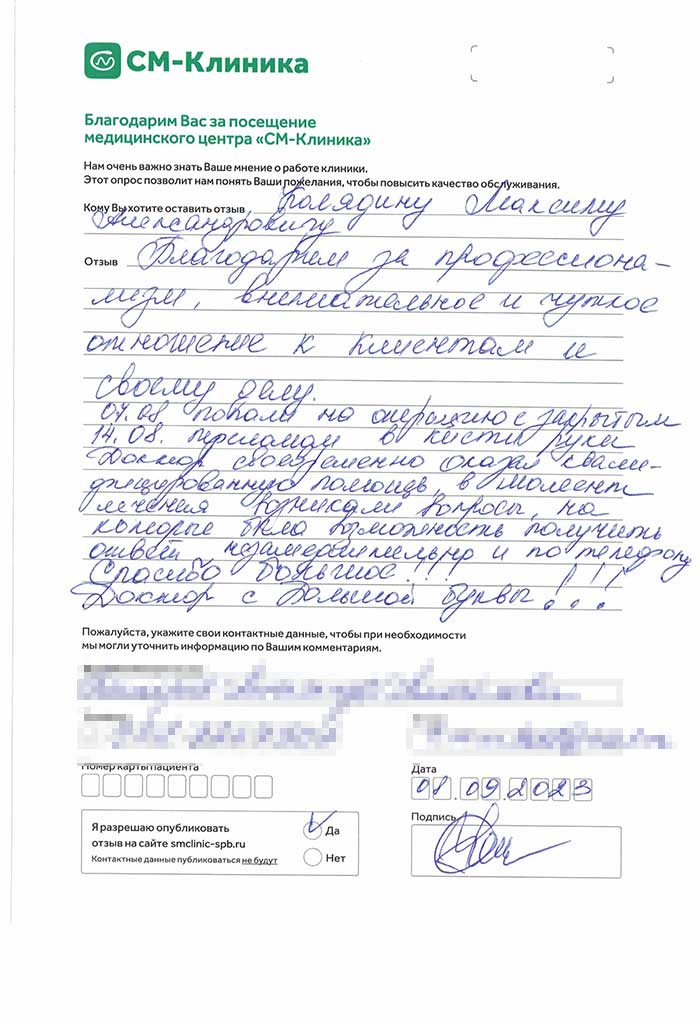 СМ-Клиника
Благодарим Вас за посещение
медицинского центра «СМ-Клиника»
Нам очень важно знать Ваше мнение о работе клиники.
Этот опрос позволит нам понять Ваши пожелания, чтобы повысить качество обслуживания.
Кому Вы хотите оставить отзыв Колядину Максиму
Александровичу
Отзыв Благодарим за профессиона-
лизм, внимательное и чуткое
отношение к клиентам и
своему делу.
07.08 попала на операцию с закрытым
14.08. переломом в кисти руки
Доктор своевременно оказал квали-
фицированную помощь, в момент
лечения возникали вопросы, на
которые была возможность получить
ответ незамедлительно и по телефону
Спасибо большое!!!
Доктор с Большой буквы!!!
Пожалуйста, укажите свои контактные данные, чтобы при необходимости
мы могли уточнить информацию по Вашим комментариям.
Номер карты пациента
Дата
08.09.2023
Подпись
Я разрешаю опубликовать
отзыв на сайте smclinic-spb.ru
Контактные данные публиковаться не будут
Да
Нет